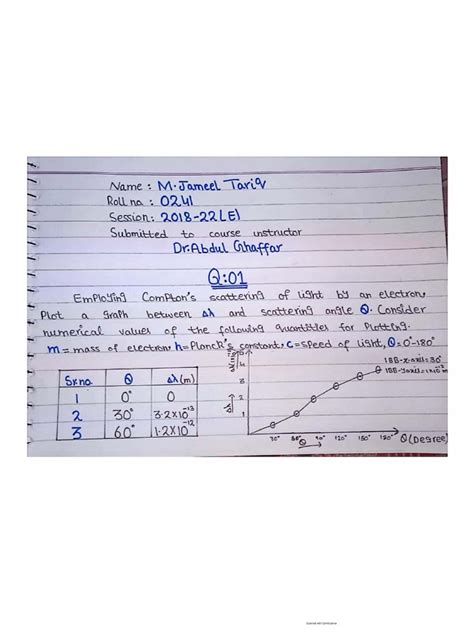 Name : M.Jameel Tariq
Roll no. : 0241
Session: 2018-22(E)
Submitted to course instructor
Dr.Abdul Ghaffar
Q:01
Employing Compton's scattering of light by an electron,
Plot a graph between Δλ and scattering angle θ. Consider
numerical values of the following quantities for Plotting.
m = mass of electron, h = Planck's constant, c = speed of light, θ = 0°-180°
Sr.no. θ Δλ(m)
1 0° 0
2 30° 3.2x10⁻¹³
3 60° 1.2x10⁻¹²
5
4
3
2
1
1BB-x-axis = 30°
30° 60° 90° 120° 150° 180° θ(Degree)
Scanned with CamScanner